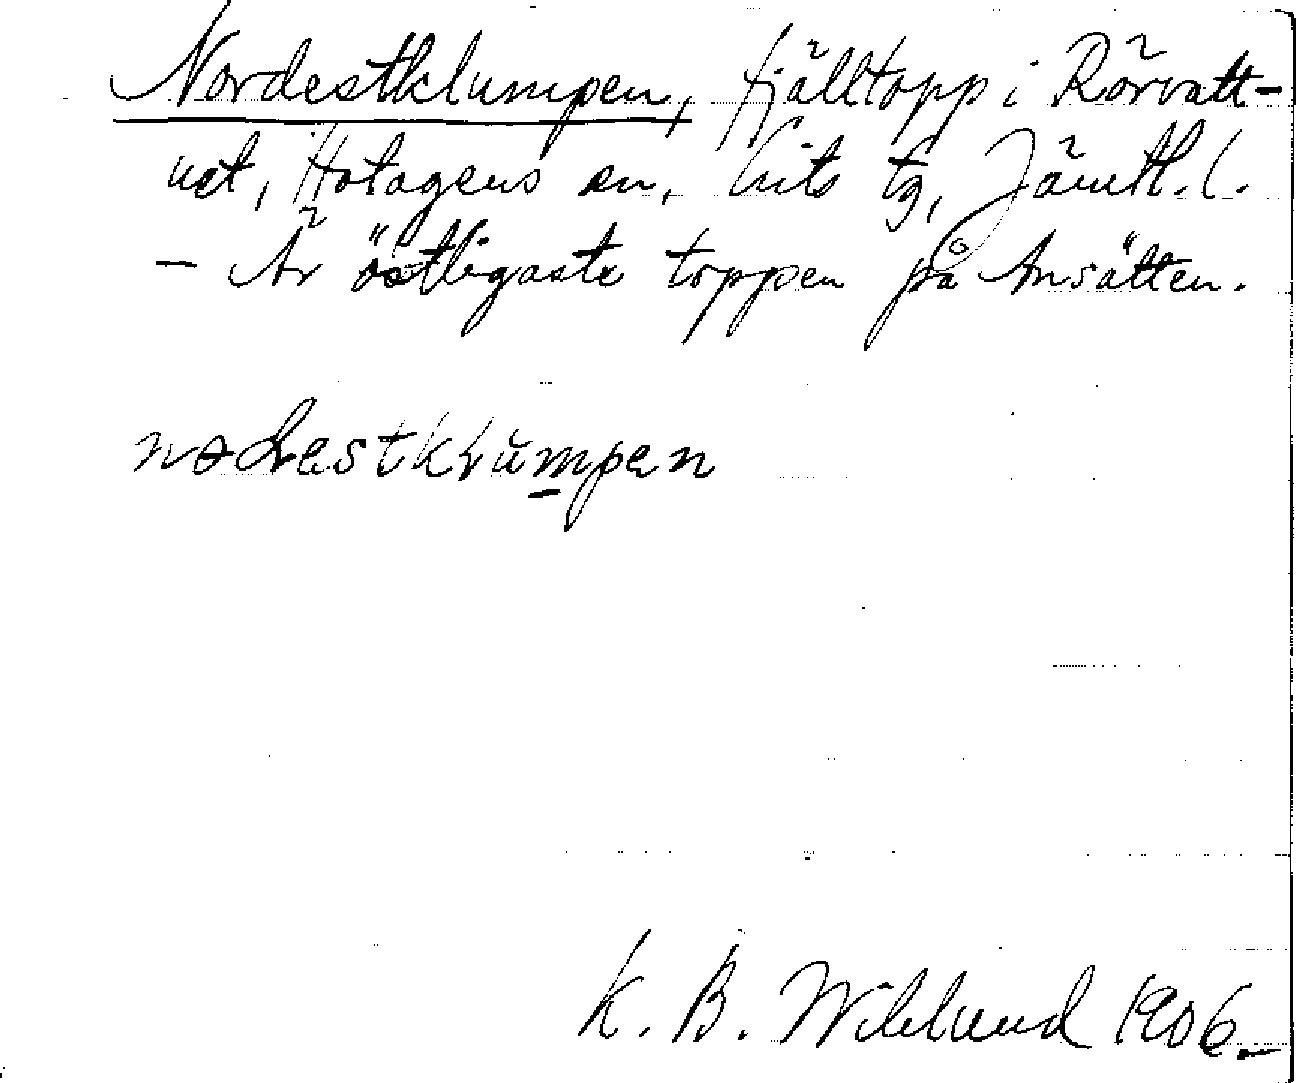 Nordestklumpen, fjälltopp i Rörvatt-
net, Hotagens sn, Lits tg, Jämtl. l.
- Är östligaste toppen på Ansätten.
K. B. Wiklund 1906.